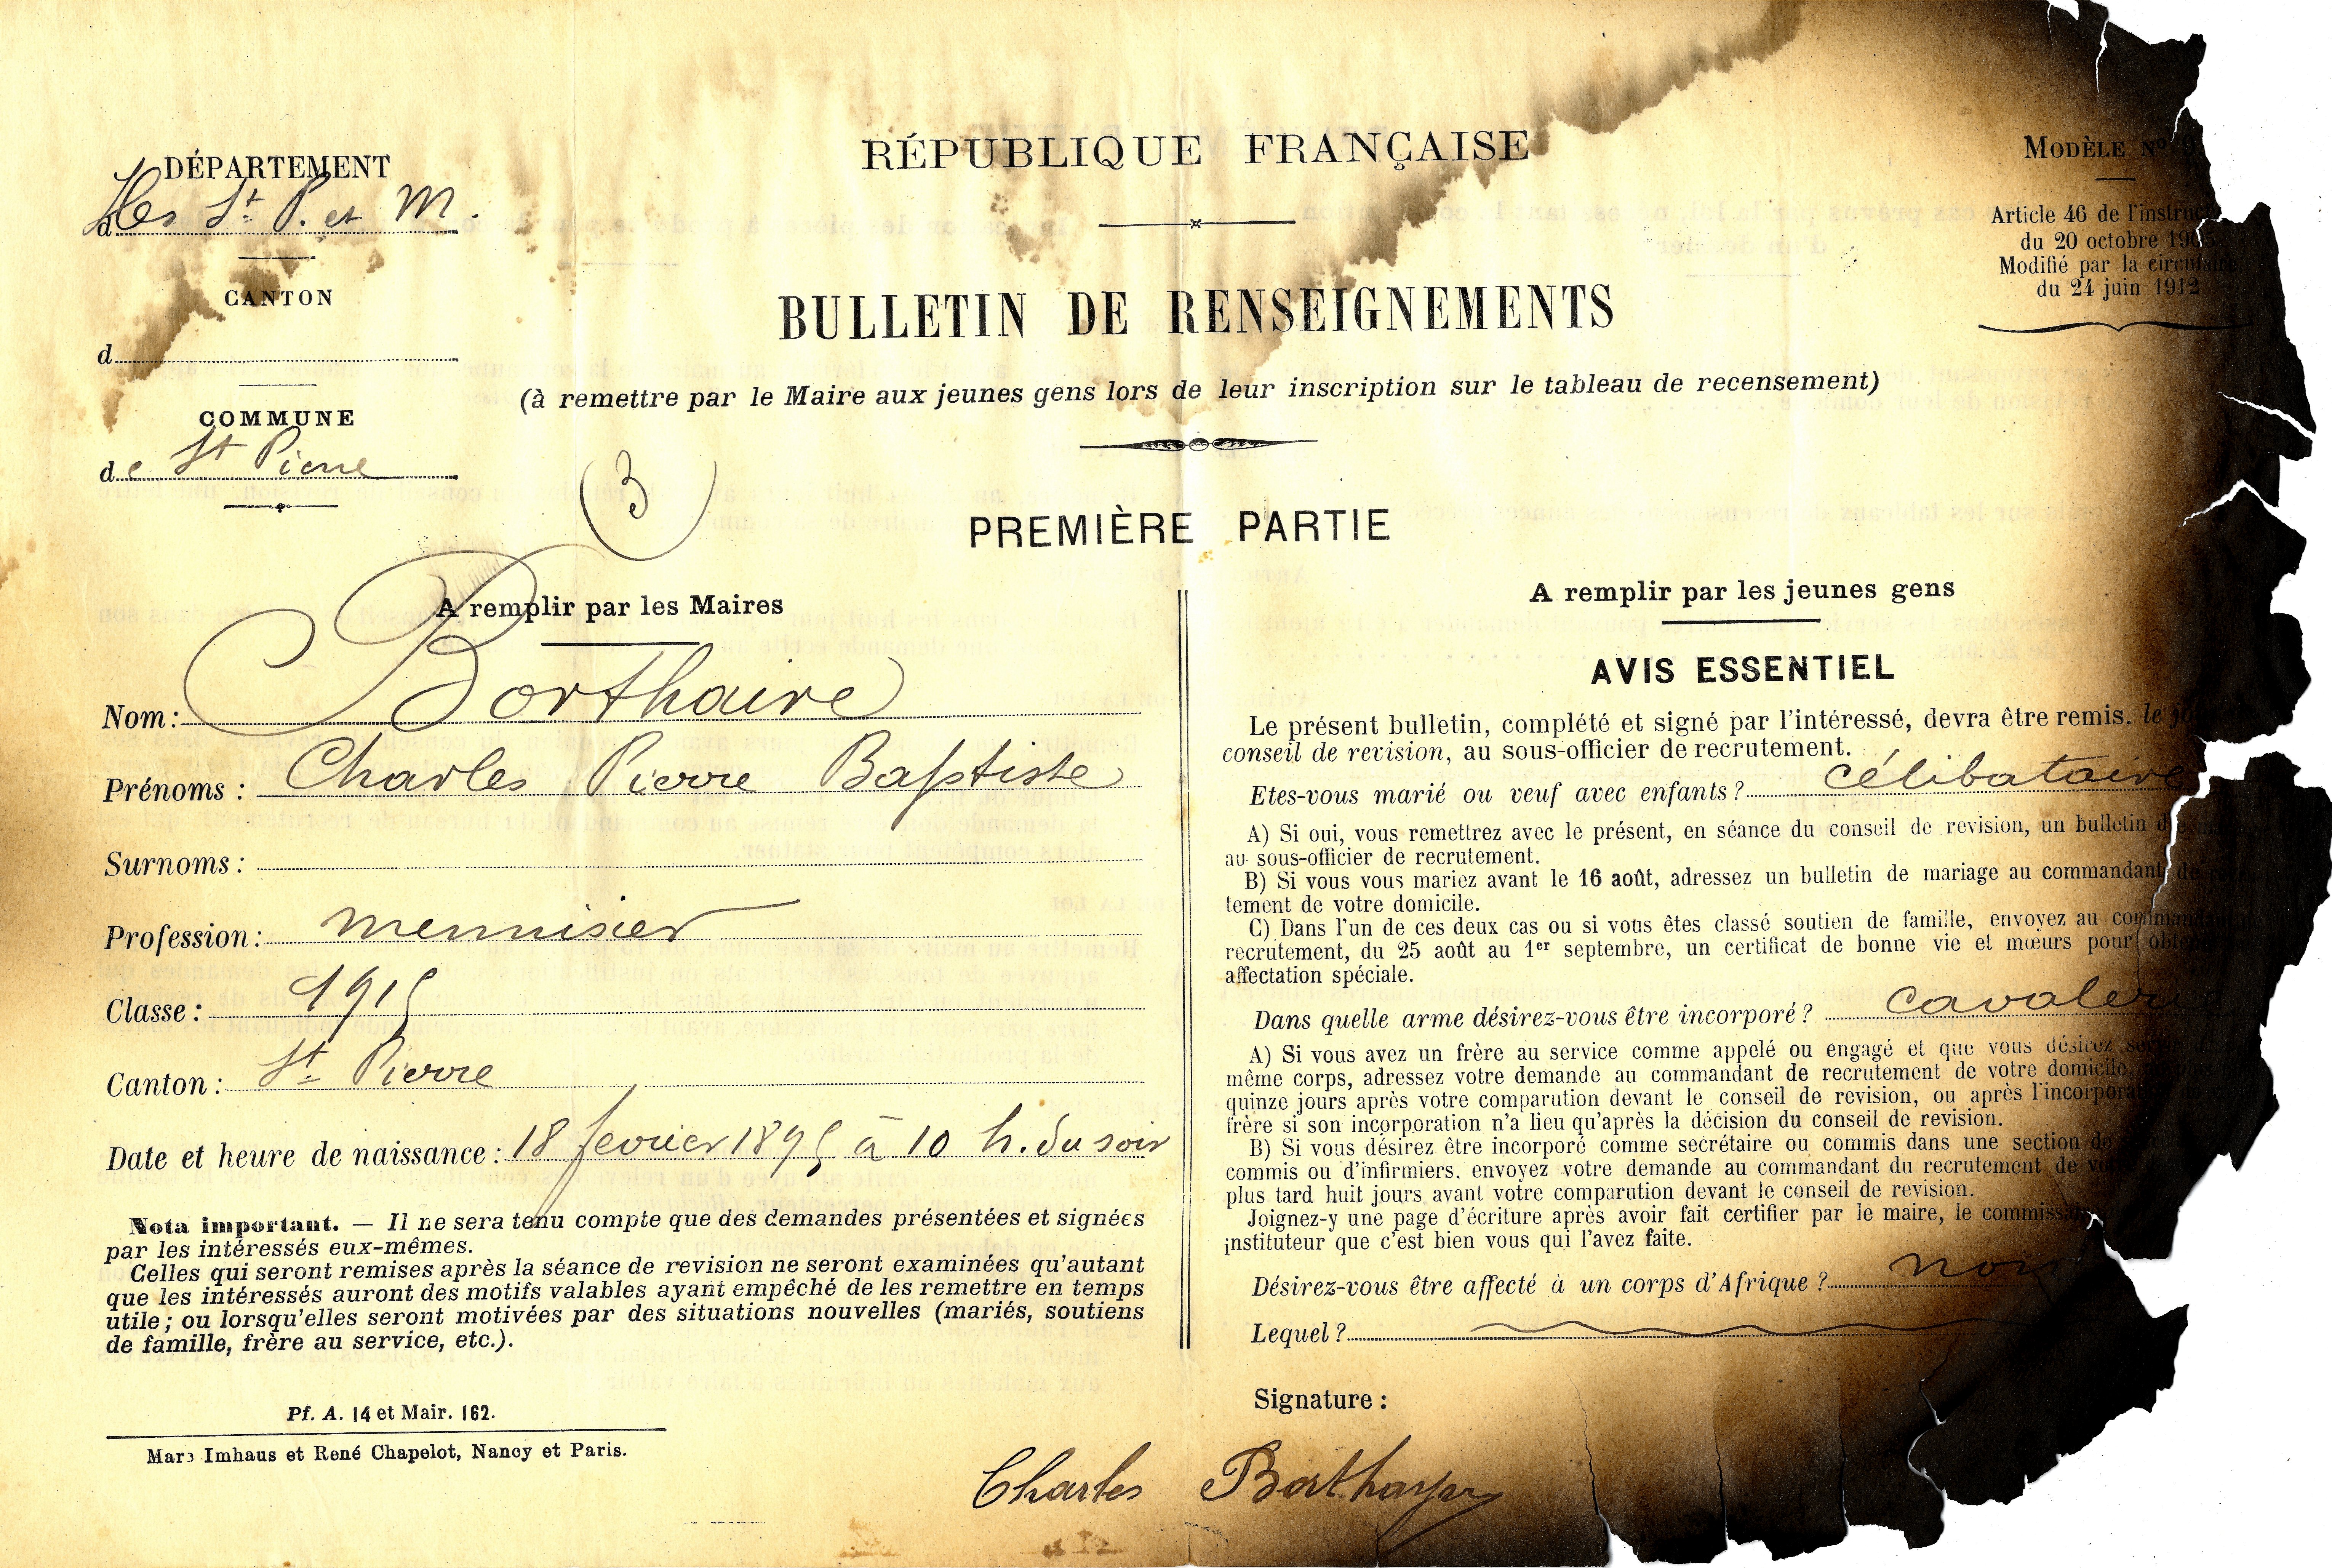 DÉPARTEMENT
d Iles St P. et M.
CANTON
d
COMMUNE
de St Pierre
RÉPUBLIQUE FRANÇAISE
MODÈLE Nº
Article 46 de l'instruc
du 20 octobre 190
Modifié par la circulaire
du 24 juin 1912
BULLETIN DE RENSEIGNEMENTS
(à remettre par le Maire aux jeunes gens lors de leur inscription sur le tableau de recensement)
(3)
PREMIÈRE PARTIE
A remplir par les Maires
Nom : Borthaire
Prénoms : Charles Pierre Baptiste
Surnoms :
Profession : menuisier
Classe : 1915
Canton : St Pierre
Date et heure de naissance : 18 fevrier 1895 à 10 h. du soir
Nota important. — Il ne sera tenu compte que des demandes présentées et signées
par les intéressés eux-mêmes.
Celles qui seront remises après la séance de revision ne seront examinées qu'autant
que les intéressés auront des motifs valables ayant empêché de les remettre en temps
utile ; ou lorsqu'elles seront motivées par des situations nouvelles (mariés, soutiens
de famille, frère au service, etc.).
Pf. A. 14 et Mair. 162.
Marc Imhaus et René Chapelot, Nancy et Paris.
A remplir par les jeunes gens
AVIS ESSENTIEL
Le présent bulletin, complété et signé par l'intéressé, devra être remis. le
conseil de revision, au sous-officier de recrutement.
Etes-vous marié ou veuf avec enfants ? célibataire
A) Si oui, vous remettrez avec le présent, en séance du conseil de revision, un bulletin
au sous-officier de recrutement.
B) Si vous vous mariez avant le 16 août, adressez un bulletin de mariage au commandant de
tement de votre domicile.
C) Dans l'un de ces deux cas ou si vous êtes classé soutien de famille, envoyez au command
recrutement, du 25 août au 1er septembre, un certificat de bonne vie et mœurs pour obte
affectation spéciale.
Dans quelle arme désirez-vous être incorporé ? cavalerie
A) Si vous avez un frère au service comme appelé ou engagé et que vous désirez
même corps, adressez votre demande au commandant de recrutement de votre domicile
quinze jours après votre comparution devant le conseil de revision, ou après l'incorpora
frère si son incorporation n'a lieu qu'après la décision du conseil de revision.
B) Si vous désirez être incorporé comme secrétaire ou commis dans une section de
commis ou d'infirmiers, envoyez votre demande au commandant du recrutement de
plus tard huit jours avant votre comparution devant le conseil de revision.
Joignez-y une page d'écriture après avoir fait certifier par le maire, le commissa
instituteur que c'est bien vous qui l'avez faite.
Désirez-vous être affecté à un corps d'Afrique ? non
Lequel ?
Signature :
Charles Borthayre